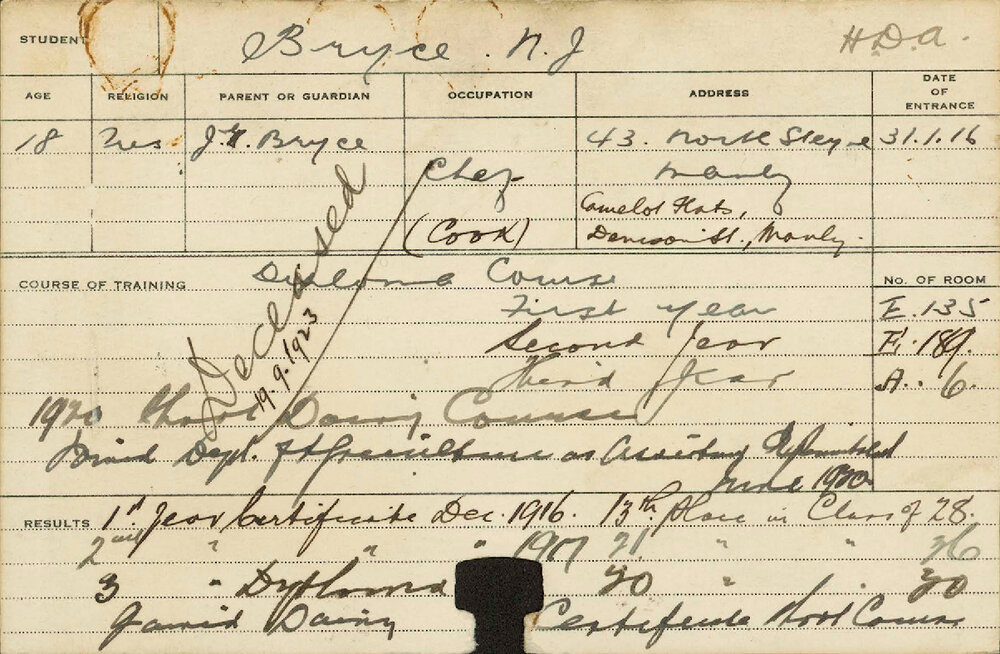 STUDENT Bryce. N. J H.D.A.
AGE RELIGION PARENT OR GUARDIAN OCCUPATION ADDRESS DATE OF ENTRANCE
18 Pres J. Bryce 43. North Steyne 31.1.16
Chef Manly
Camelot Flats,
(Cook) Denison St., Manly.
Deceased
19.9.1923
COURSE OF TRAINING Diploma Course No. OF ROOM
First Year E. 135
Second Year E. 189.
Third Year A. 6.
1920 Short Dairy Course
Joined Dept. of Agriculture as Assistant
June 1920
RESULTS 1st Year Certificate Dec. 1916. 13th Place in Class of 28.
2nd " " " 1917 21 " " 26
3 " Diploma 20 " 20
Gained Dairy Certificate Short Course